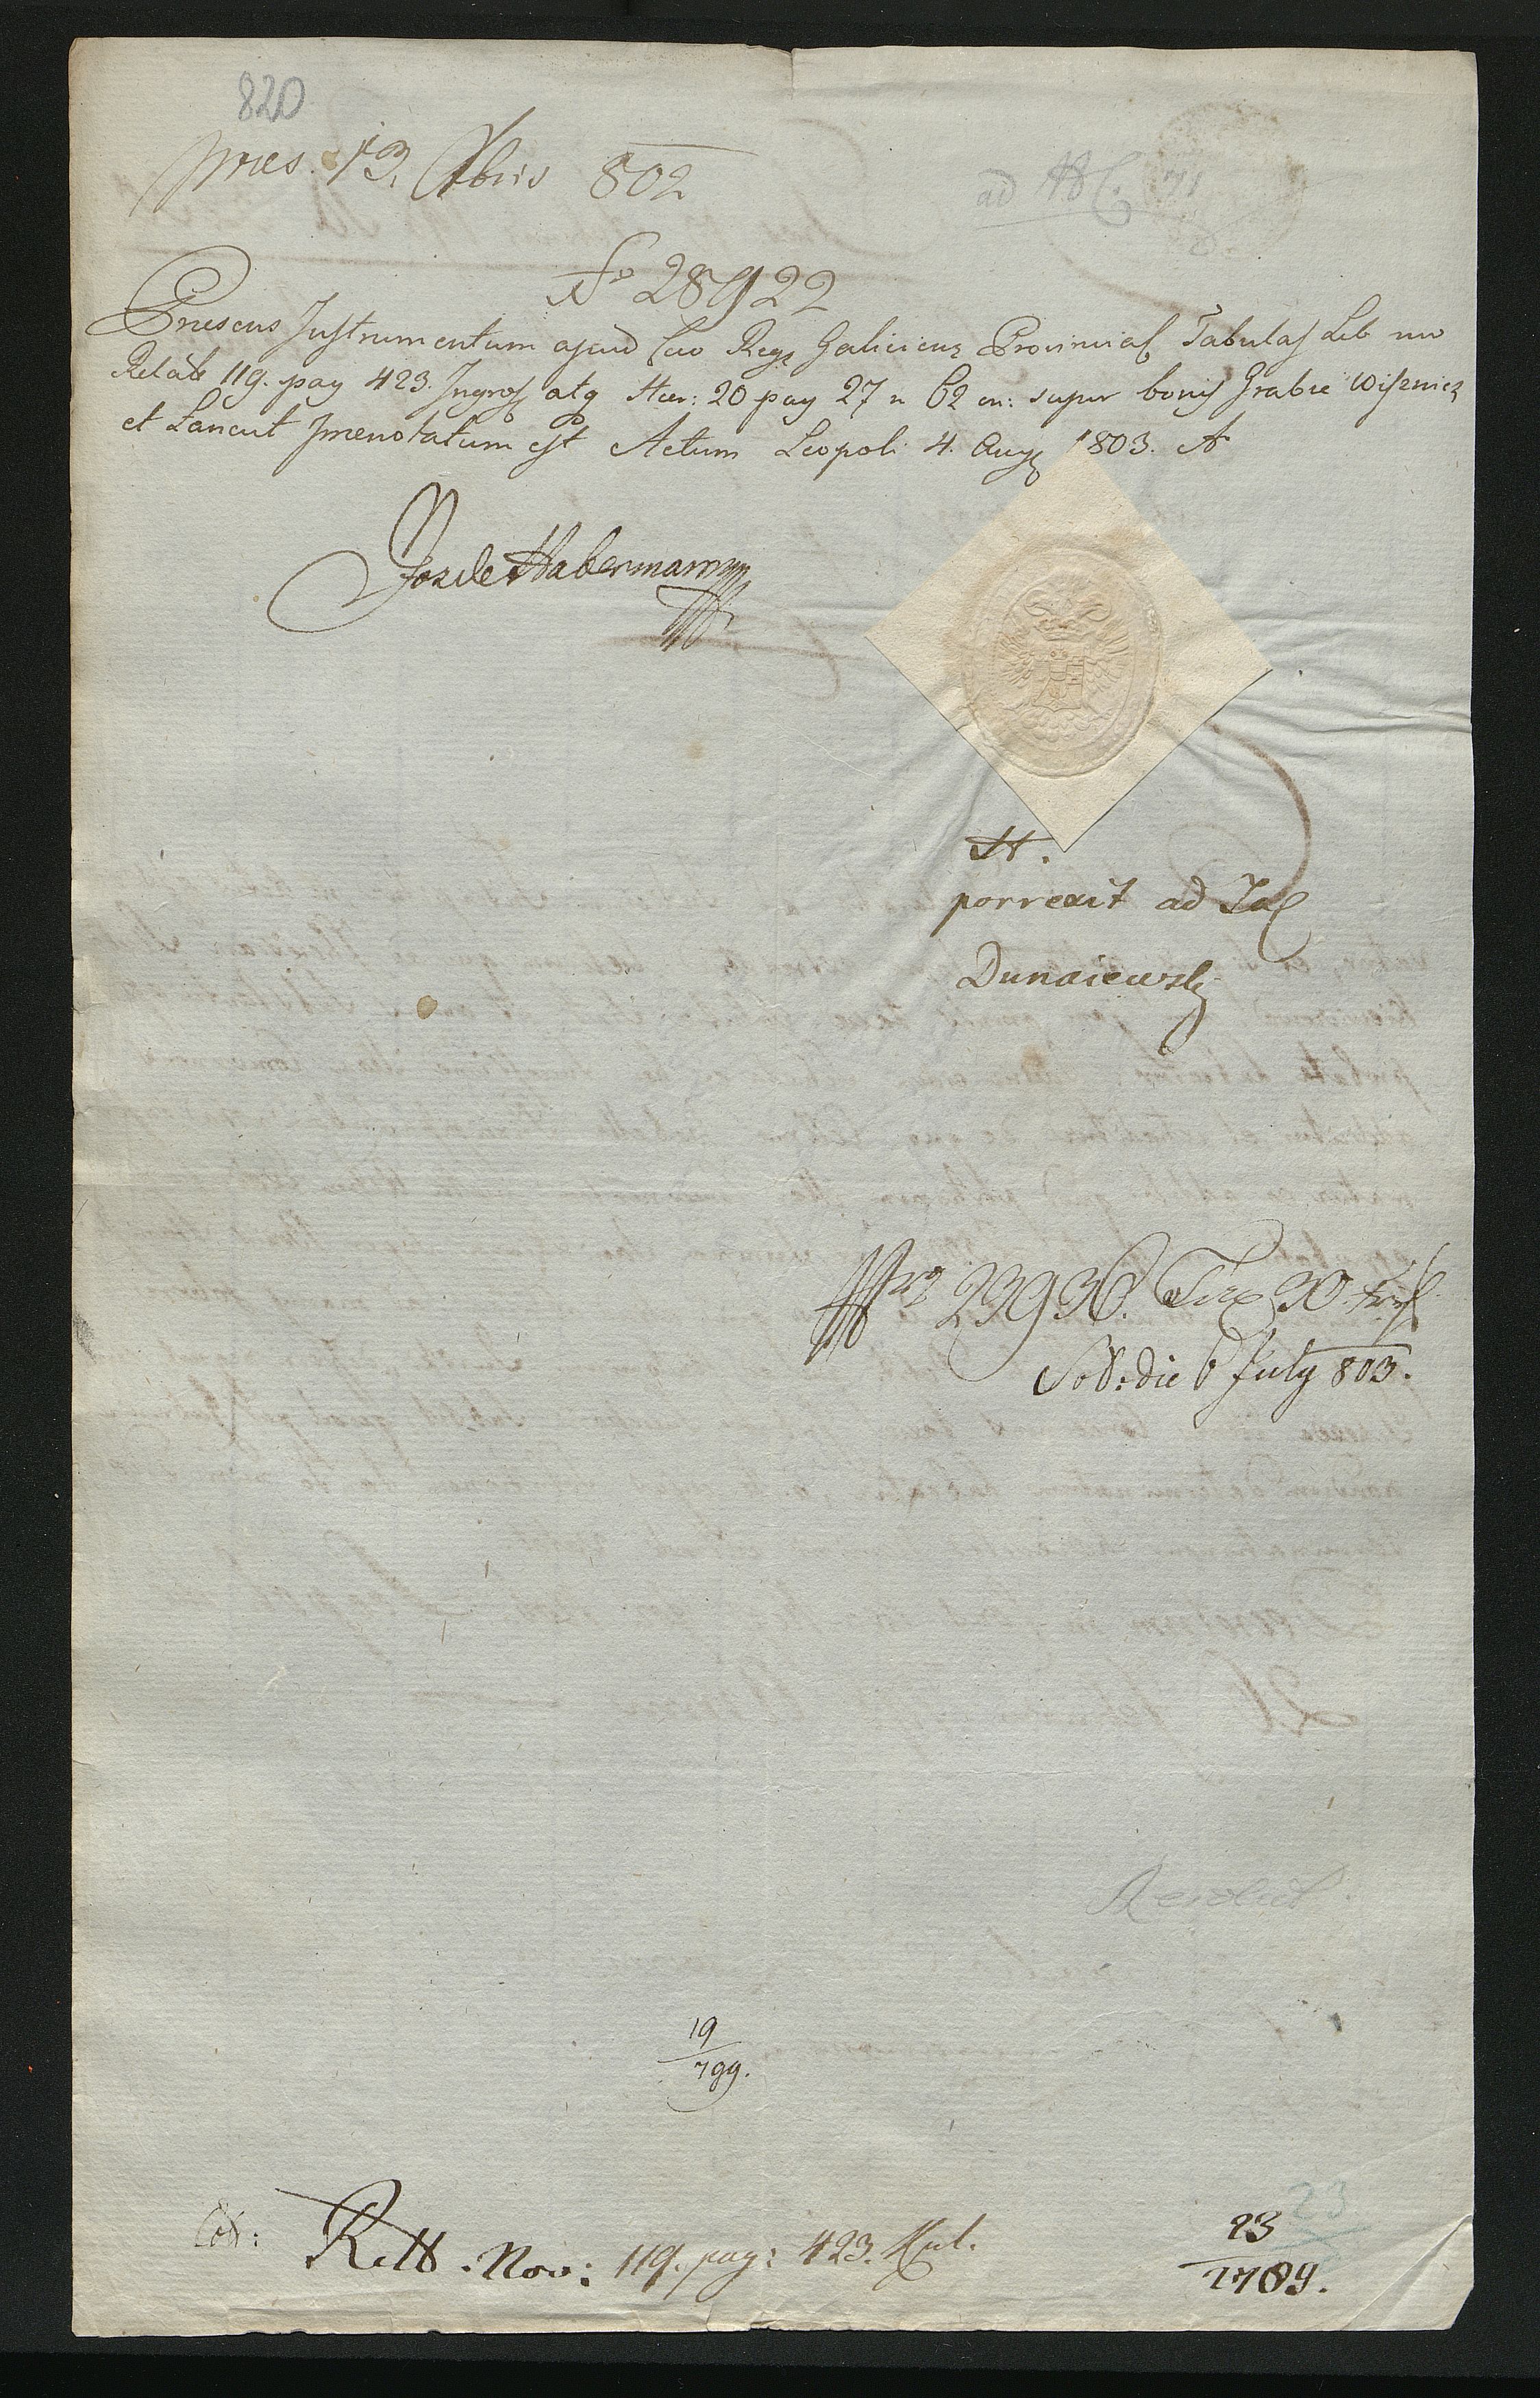 820
pres. 13. Xbris 802
ad
No 28922
Præsens Instrumentum apud Cæo Regs Galiciens Provincial Tabulas Lib nov
Relat 119. pag 423. Ingros atq Haer: 20 pag 27 n 62 on: super bonis Hrabie Wisznicz
et Lancut prænotatum est Actum Leopoli 4. Aug 1803. A
Jos de Habermann mp
porrexit ad Tax
Dunaiewsky
23936. Tax 30 xr
Sol: die 6 July 803.
19
799.
Coll:
Rell. Nov: 119. pag: 423.
23
23
1789.